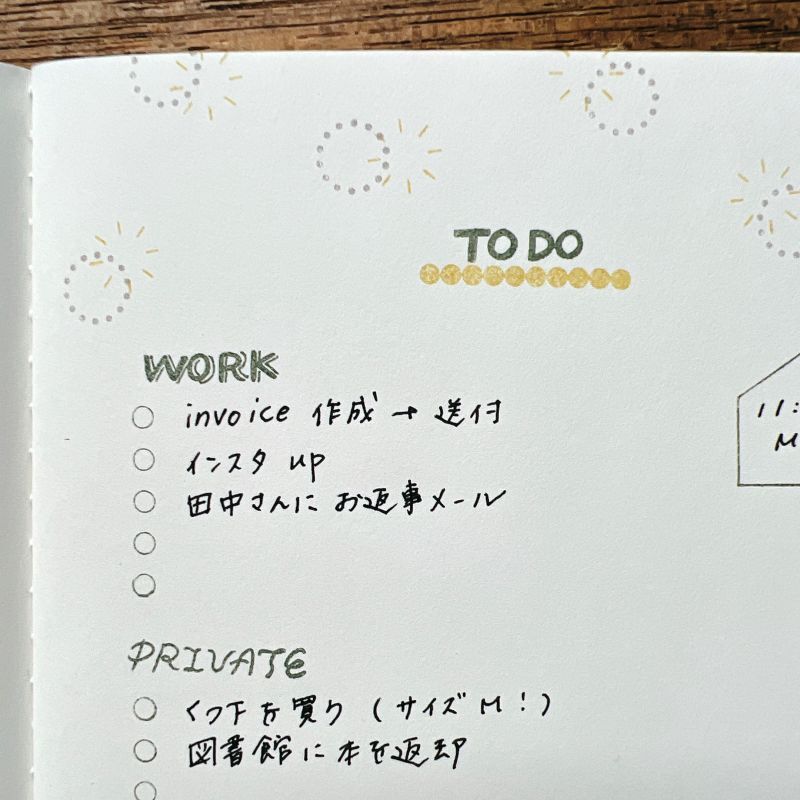 TO DO
WORK
invoice 作成 → 送付
インスタ up
田中さんに お返事メール
11:
M
PRIVATE
くつ下を買う (サイズ M!)
図書館に本を返却